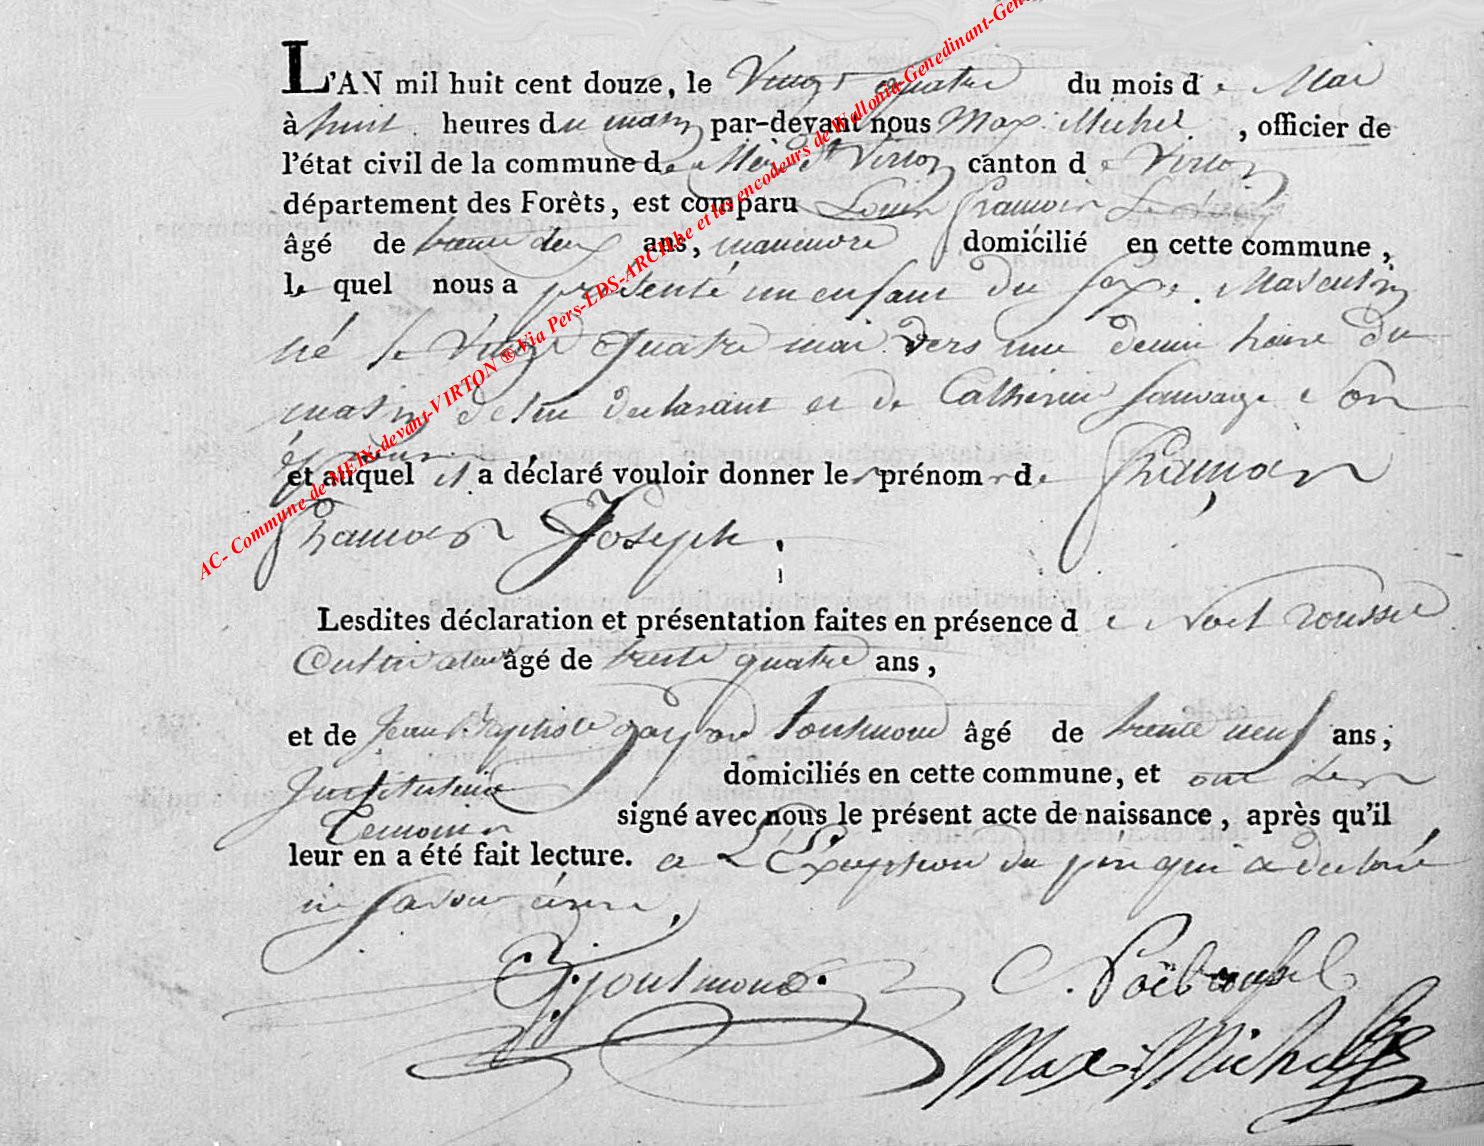 L'AN mil huit cent douze, le Vingt quatre du mois de Mai
à huit heures du matin par-devant nous Max. Michel, officier de
l'état civil de la commune de Meix dt Virton canton de Virton
département des Forêts, est comparu Louis françois
âgé de trente deux ans, manœuvre domicilié en cette commune,
le quel nous a présenté un enfant du sexe Masculin
né le Vingt quatre mai vers une demie heure du
matin de lui declarant et de Catherine Sauvage Son
épouse
et auquel il a déclaré vouloir donner les prénoms de françois
françois Joseph.
Lesdites déclaration et présentation faites en présence de Noel roussel
Cultivateur âgé de trente quatre ans,
et de Jean Baptiste fourmond âgé de trente neuf ans;
Instituteur domiciliés en cette commune, et ont Les
Temoins signé avec nous le présent acte de naissance, après qu'il
leur en a été fait lecture. a L'Exception du père qui a declaré
ne savoir écrire,
Noël roussel
Max. Michel
AC- Commune de MEIX-devant-VIRTON ® Via Pers-EPS-ARCH.be et les encodeurs de Wallonia-Genedinant-Gen